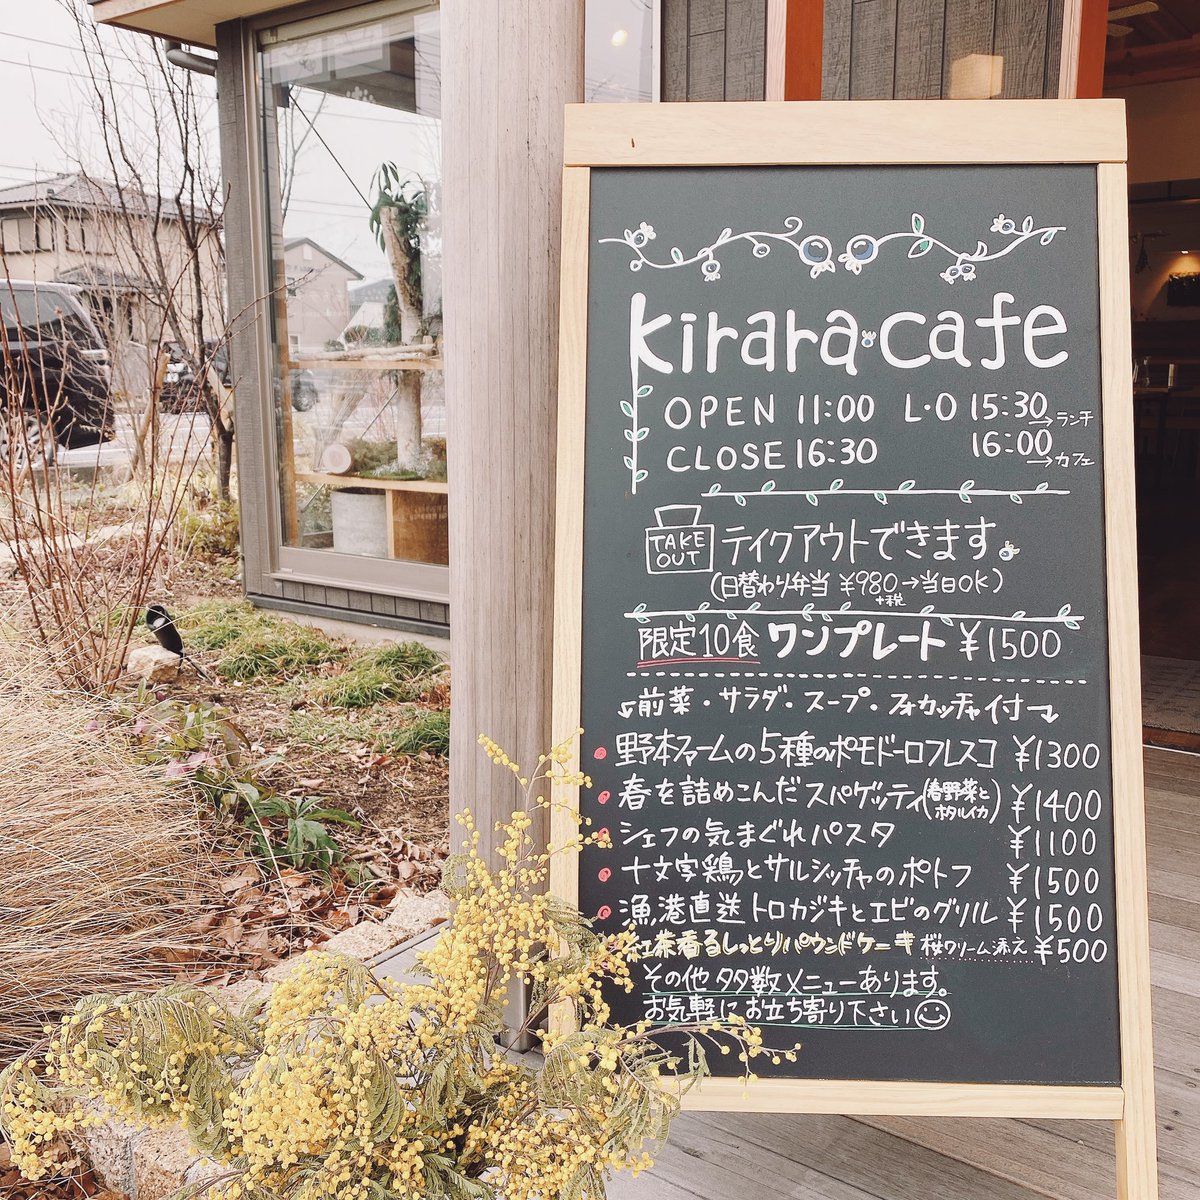 kirara cafe
OPEN 11:00 L・O 15:30→ランチ
CLOSE 16:30 16:00→カフェ
TAKE OUT テイクアウトできます。
(日替わり弁当 ¥980→当日OK)
+税
限定10食 ワンプレート ¥1500
前菜・サラダ・スープ・フォカッチャ付
野本ファームの5種のポモドーロフレスコ ¥1300
春を詰めこんだスパゲッティ(春野菜とホタルイカ) ¥1400
シェフの気まぐれパスタ ¥1100
十文字鶏とサルシッチャのポトフ ¥1500
漁港直送トロカジキとエビのグリル ¥1500
紅茶香るしっとりパウンドケーキ 桜クリーム添え ¥500
その他多数メニューあります。
お気軽にお立ち寄り下さい